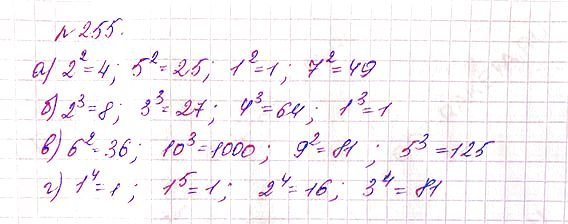 №255.
а) 2²=4; 5²=25; 1²=1; 7²=49
б) 2³=8; 3³=27; 4³=64; 1³=1
в) 6²=36; 10³=1000; 9²=81; 5³=125
г) 1⁴=1; 1⁵=1; 2⁴=16; 3⁴=81